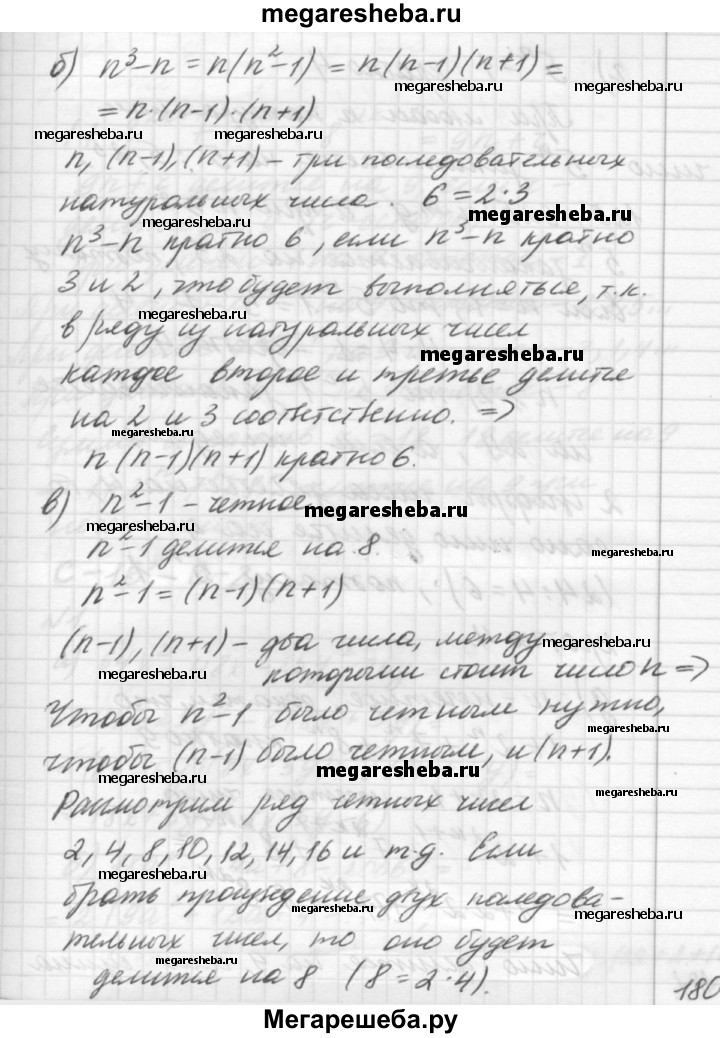 megaresheba.ru
б) n³-n = n(n²-1) = n(n-1)(n+1) =
megaresheba.ru
= n·(n-1)·(n+1)
megaresheba.ru
megaresheba.ru
n, (n-1), (n+1) - три последовательных
натуральных числа. 6=2·3
megaresheba.ru
megaresheba.ru
n³-n кратно 6, если n³-n кратно
3 и 2, что будет выполняться, т.к.
в ряду из натуральных чисел
megaresheba.ru
каждое второе и третье делится
на 2 и 3 соответственно. =>
megaresheba.ru
n(n-1)(n+1) кратно 6.
в) n²-1 - четное
megaresheba.ru
megaresheba.ru
n²-1 делится на 8.
megaresheba.ru
n²-1 = (n-1)(n+1)
(n-1), (n+1) - два числа, между
megaresheba.ru
megaresheba.ru
которыми стоит число n =>
Чтобы n²-1 было четным нужно,
чтобы (n-1) было четным, и (n+1).
megaresheba.ru
megaresheba.ru
Рассмотрим ряд четных чисел
2, 4, 8, 10, 12, 14, 16 и т.д. Если
брать произведение двух последова-
megaresheba.ru
megaresheba.ru
тельных чисел, то оно будет
делится на 8 (8=2·4).
megaresheba.ru
180
Мегарешеба.ру